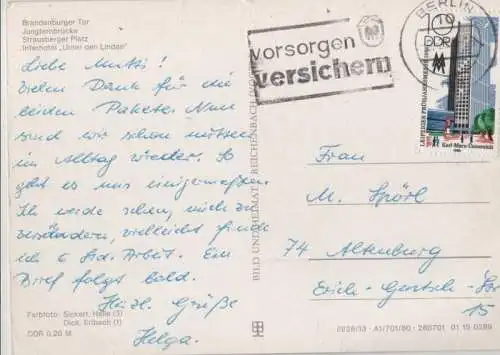 Brandenburger Tor
Jungfernbrücke
Strausberger Platz
Interhotel „Unter den Linden“
Liebe Mutti!
Vielen Dank für die
beiden Pakete. Nun
sind wir schon mitten
im Alltag wieder. So
geht es uns einigermaßen.
Ich werde sehen, mich zu
verändern, vielleicht finde
ich 6 Std. Arbeit. Ein
Brief folgt bald.
Herzl. Grüße
Helga.
Farbfoto: Sickert, Halle (3)
Dick, Erlbach (1)
DDR 0,20 M
BILD UND HEIMAT REICHENBACH
vorsorgen
versichern
BERLIN
10
DDR
LEIPZIGER FRÜHJAHRSMESSE
Karl-Marx-Universität
Frau
M. Spörl
74 Altenburg
Erich-Gertsch-Str
15
A1/701/80 280701 01 15 0289